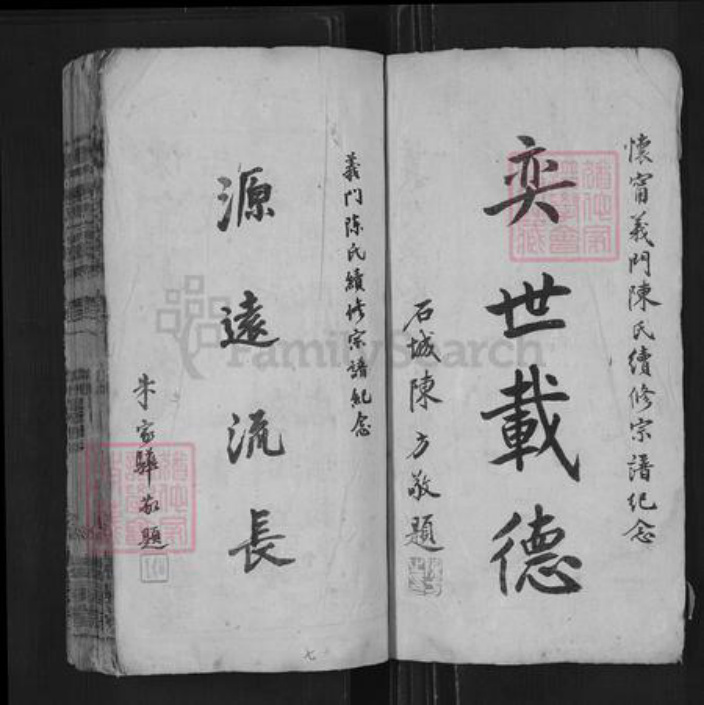 懷甯義門陳氏續修宗譜紀念
奕世載德
石城陳方敬題
義门陈氏續修宗譜紀念
源遠流長
朱家驊敬題
七
FamilySearch